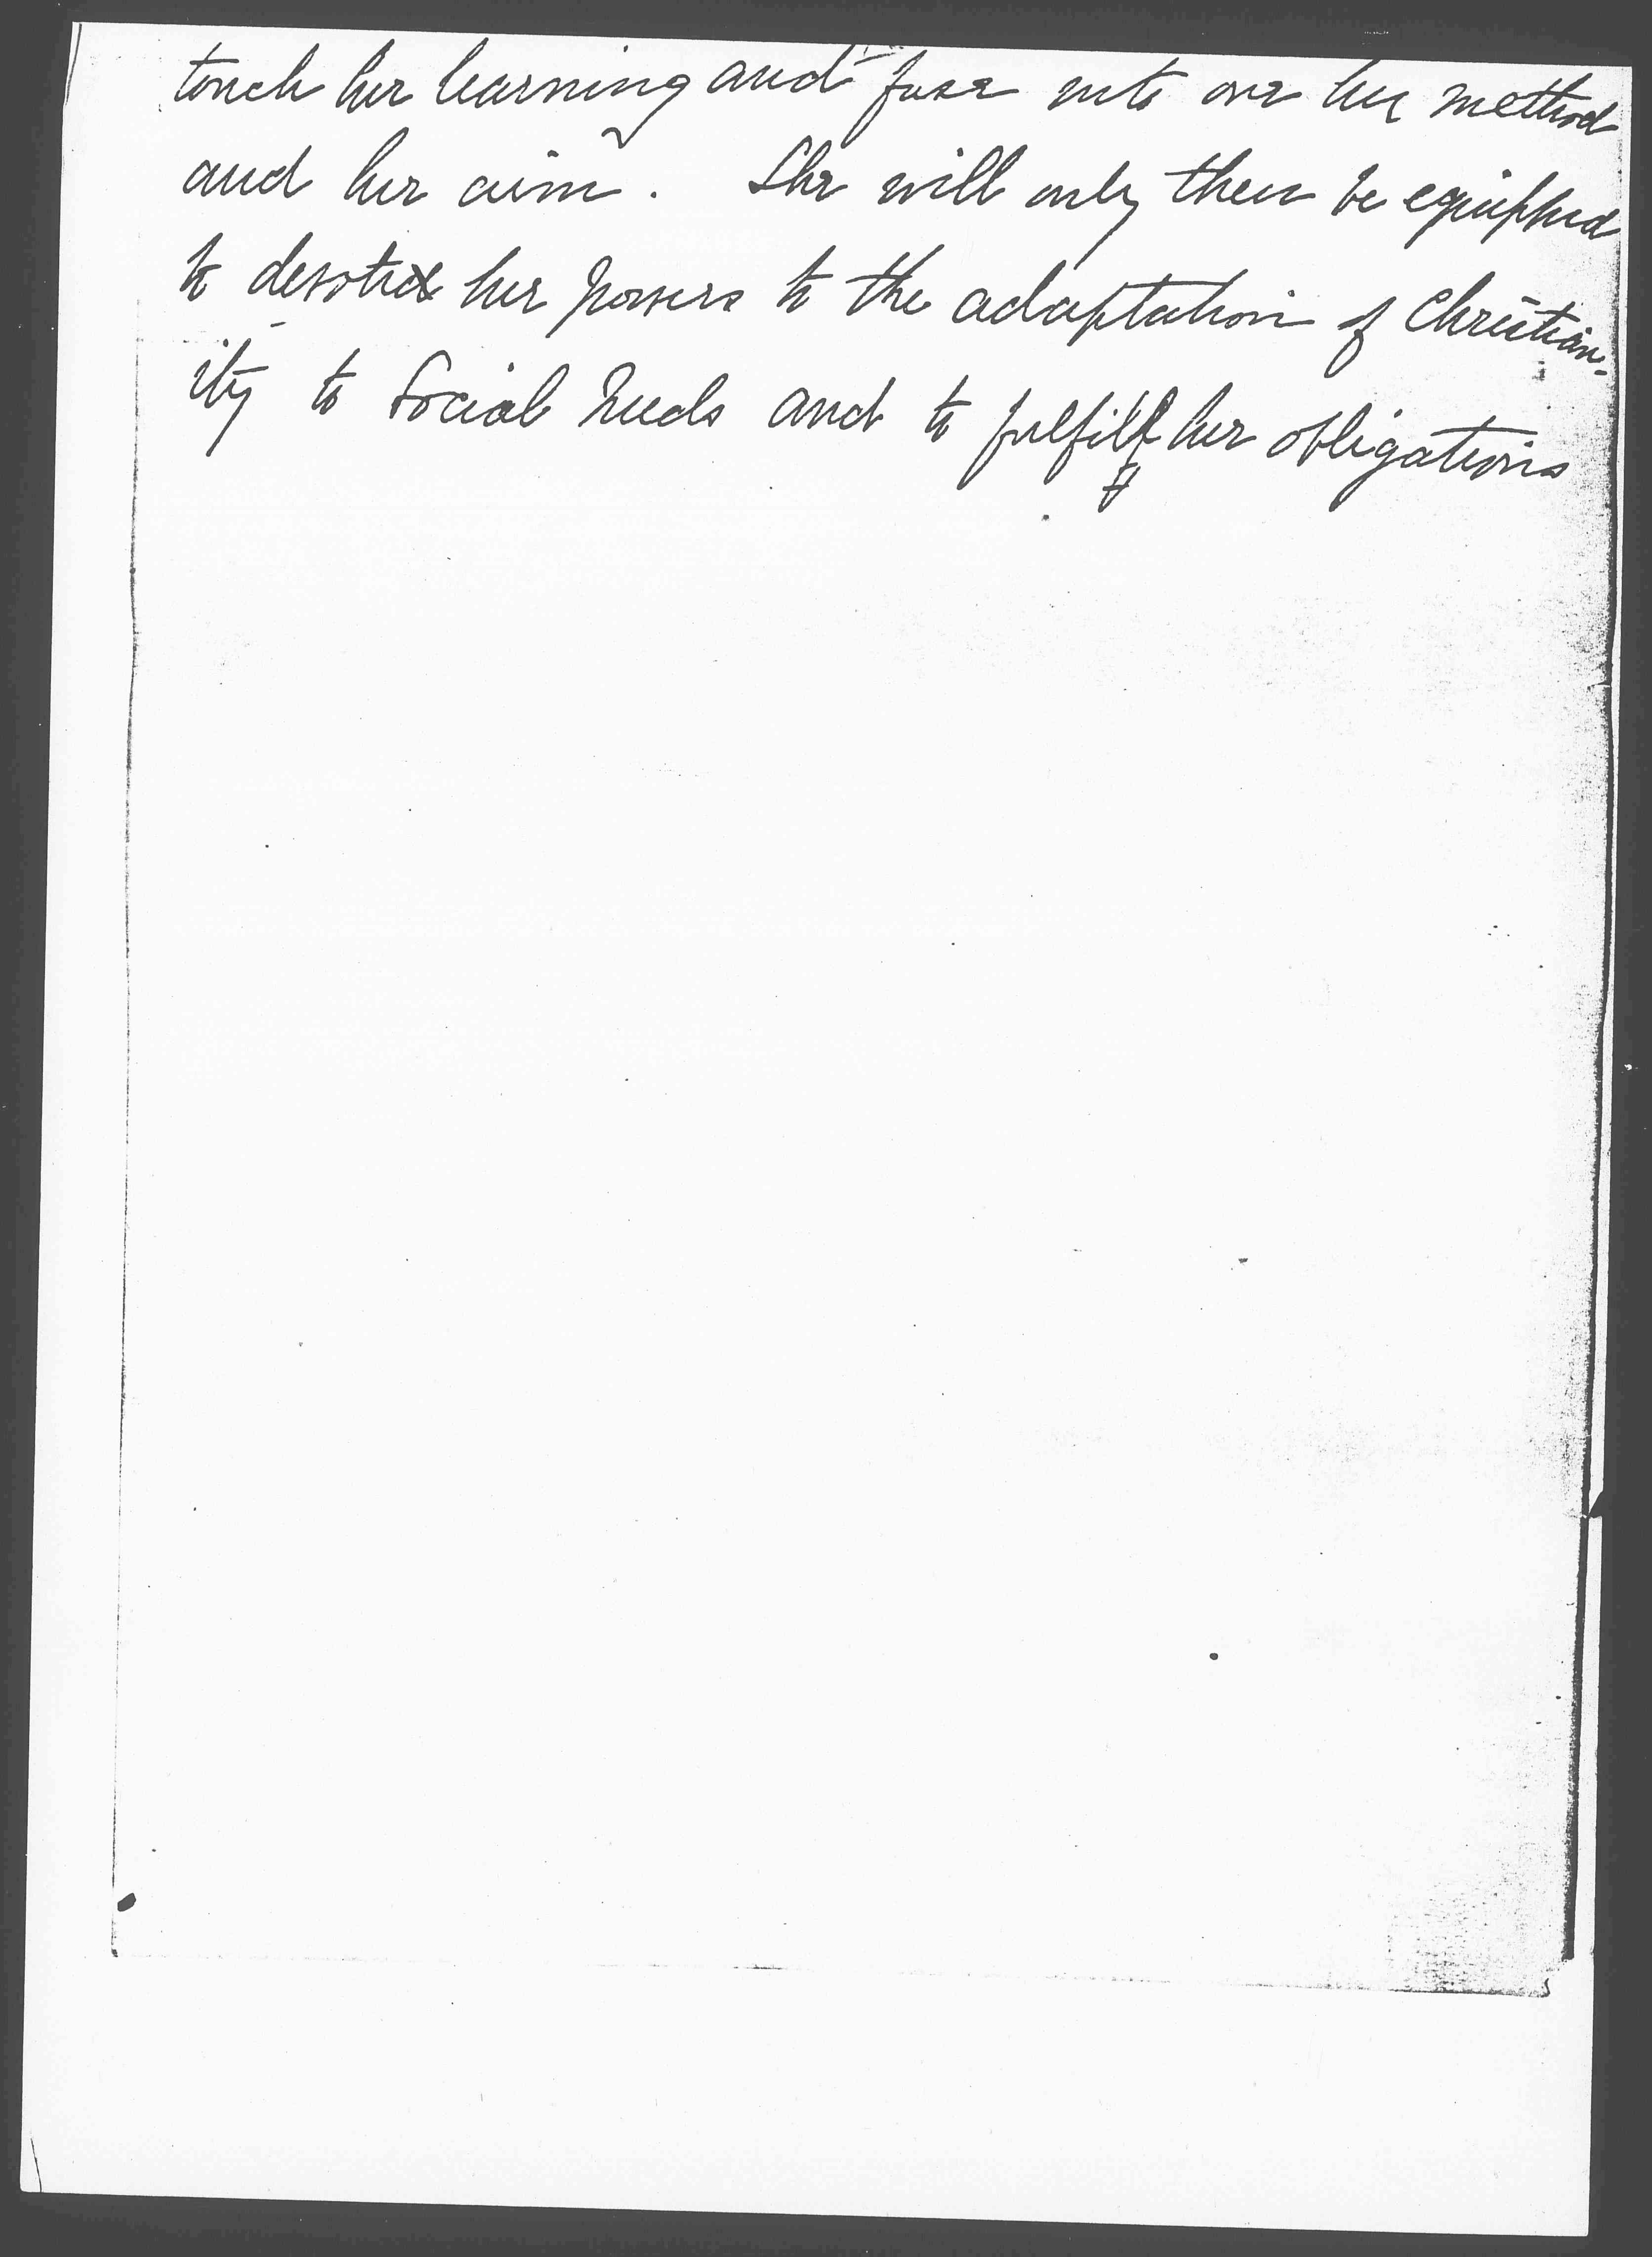 touch her learning and fuse into one her method
and her aim. She will only then be equipped
to devote her powers to the adaptation of Christian-
ity to Social Needs and to fulfill her obligations